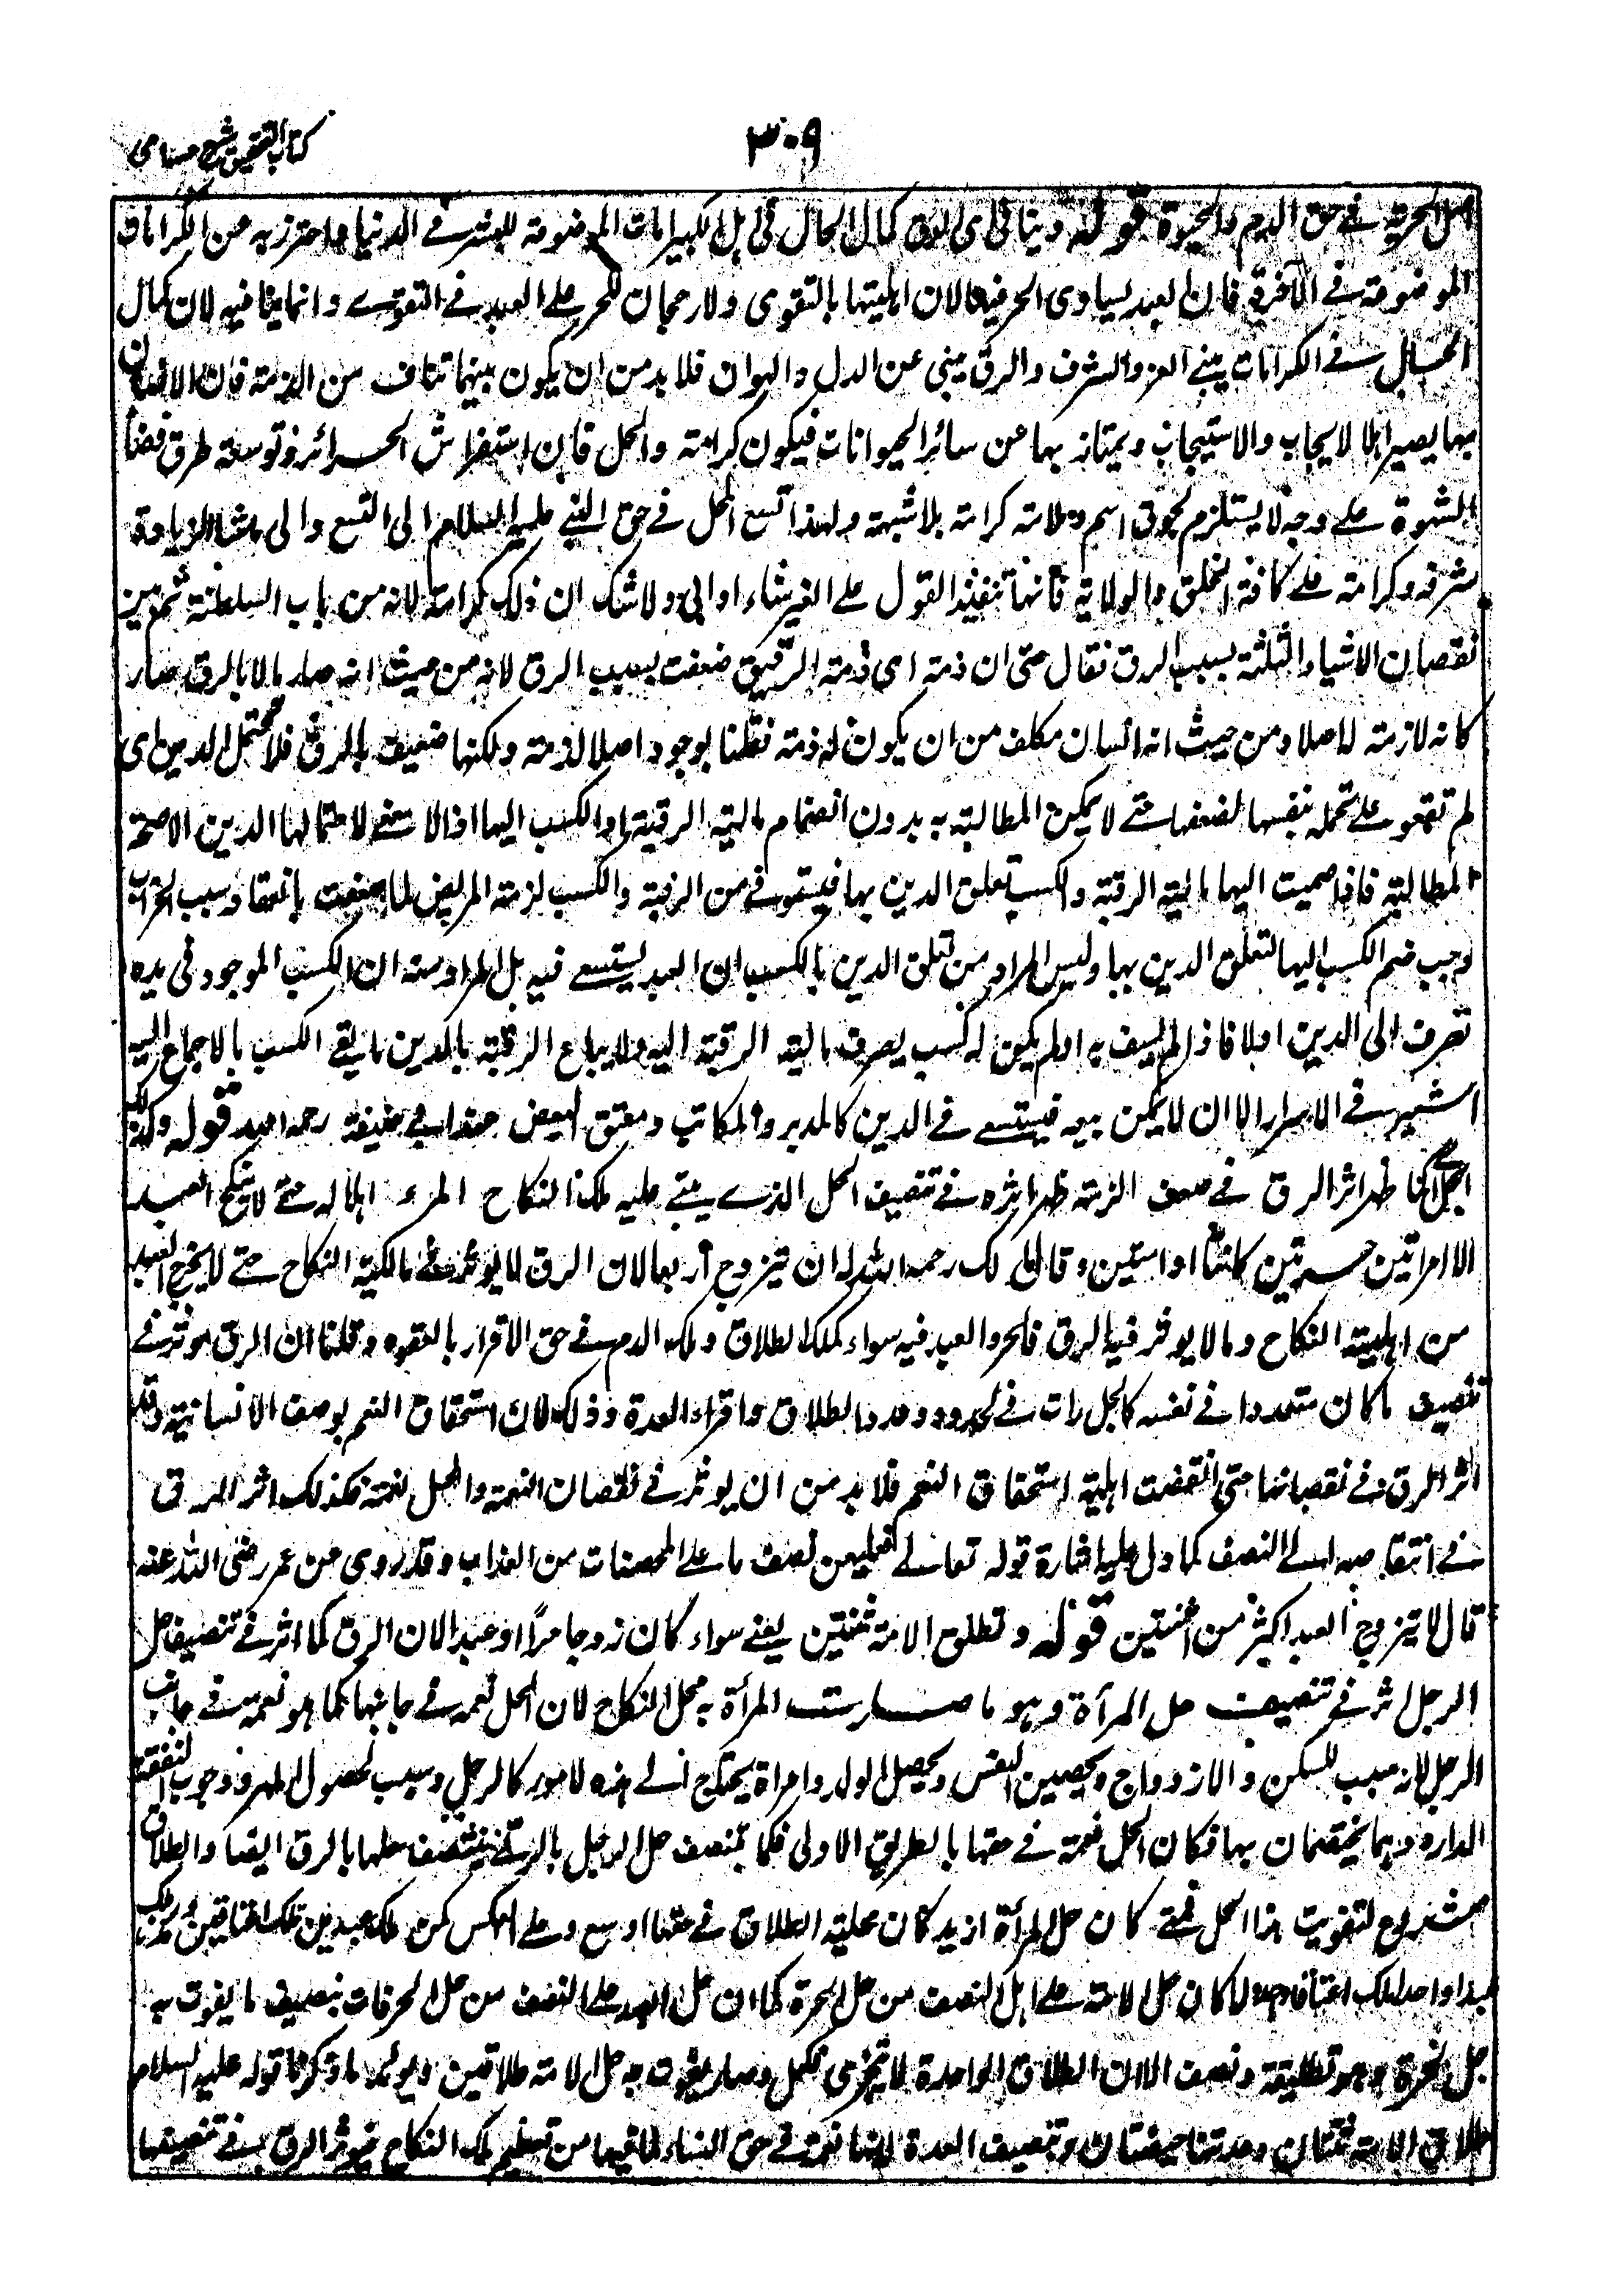 كتاب التحقيق شرح حسامى
٣٠٩
اصل الحرية فى حق الدم والحيوة قوله وينافى اى الرق كمال الحال فى اهلية الكرامات الموضوعة للبشر فى الدنيا واحترز به عن الكرامات
الموضوعة فى الآخرة فان العبد يساوى الحر فيها لان اهليتها بالتقوى ولا رجحان للحر على العبد فى التقوى وانما ينافيه لان كمال
الحال فى الكرامات ينبى عن العز والشرف والرق ينبى عن الذل والهوان فلا بد من ان يكون بينهما تناف من الذمة فان الانسان
بها يصير اهلا لايجاب والاستيجاب ويمتاز بها عن سائر الحيوانات فيكون كرامة والحل فان استفراش الحرائر وتوسعة طرق قضاء
الشهوة على وجه لا يستلزم لحوق اسم وملامة كرامة بلا شبهة ولهذا اتسع الحل فى حق النبى عليه السلام الى التسع والى ما شاء لزيادة
شرفه وكرامته على كافة الخلق والولاية فانها تنفيذ القول على الغير شاء او ابى ولا شك ان ذلك كرامة لانه من باب السلطنة ثم بين
نقصان الاشياء الثلثة بسبب الرق فقال حتى ان ذمته اى ذمة الرقيق ضعفت بسبب الرق لانه من حيث انه صار مالا بالرق صار
كانه لا ذمة له اصلا ومن حيث انه انسان مكلف من ان يكون له ذمة فقلنا بوجود اصل الذمة ولكنها ضعيف بالرق فلا تحتمل الدين اى
لم تقو على تحمله بنفسها لضعفها حتى لا يمكن المطالبة به بدون انضمام مالية الرقبة او الكسب اليها اذ لا معنى لاحتمالها الدين الا صحة
المطالبة فاذا ضمت اليها مالية الرقبة والكسب تعلق الدين بها فيستوفى من الرقبة والكسب لذمة المريض لما ضعفت بانعقاد سبب الخراب
وجب ضم الكسب اليها لتعلق الدين بها وليس المراد من تعلق الدين بالكسب ان العبد يستسعى فيه بل المراد منه ان الكسب الموجود فى يده
تصرف الى الدين اولا فاذا لم يف به او لم يكن له كسب يصرف مالية الرقبة اليه ولا يباع الرقبة بالدين ما بقى الكسب بالاجماع اليه
اشير فى الاسرار الا ان لا يمكن بيعه فيستسعى فى الدين كالمدبر والمكاتب ومعتق البعض عند ابى حنيفة رحمه الله قوله وكذلك
الحل كما ظهر اثر الرق فى ضعف الذمة ظهر اثره فى تنصيف الحل الذى يبتنى عليه ملك النكاح المرء اهلا له حتى لا ينكح العبد
الا امراتين حرتين كانتا او امتين وقال مالك رحمه الله له ان يتزوج اربعا لان الرق لا يوثر فى مالكية النكاح حتى لا يخرج العبد
من اهلية النكاح وما لا يوثر فيه الرق فالحر والعبد فيه سواء كملك الطلاق وملك الدم فى حق الاقرار بالقود وقلنا ان الرق موثر فى
تنصيف ما كان متعددا فى نفسه كالجلدات فى الحدود وعدد الطلاق واقراء العدة وذلك لان استحقاق النعم بوصف الانسانية وقد
اثر الرق فى نقصانها حتى انتقصت اهلية استحقاق النعم فلا بد من ان يوثر فى نقصان النعمة والحل نعمة فكذلك اثر الرق
فى انتقاصه الى النصف كما دل عليه اشارة قوله تعالى فعليهن نصف ما على المحصنات من العذاب وقد روى عن عمر رضى الله عنه
قال لا يتزوج العبد اكثر من اثنتين قوله وتطلق الامة ثنتين يعنى سواء كان زوجها حرا او عبدا لان الرق كما اثر فى تنصيف حل
الرجل اثر فى تنصيف حل المرأة وهو ما صارت المرأة به محل النكاح لان الحل نعمة فى جانبها كما هو نعمة فى جانب
الرجل لانه سبب للسكن والازدواج وتحصين النفس وتحصيل الولد وامراة يحتاج الى هذه الامور كالرجل وسبب لحصول المهر ووجوب النفقة
الدارة وهما يختصان بها فكان الحل نعمة فى حقها بالطريق الاولى فكما يتنصف حل الرجل بالرق يتنصف حلها بالرق ايضا والطلاق
مشروع لتفويت هذا الحل فمتى كان حل المرأة ازيد كان محلية الطلاق فى حقها اوسع وعلى العكس كمن ملك عبدين ملك اعتاقين ومن ملك
عبدا واحدا ملك اعتاقا واحدا ولما كان حل الامة على النصف من حل الحرة كما ان حل العبد على النصف من حل الحر فات بنصيف ما يفوت به
حل الحرة وهو تطليقة ونصف الا ان الطلاق الواحدة لا يتجزى فكمل وصار يفوت به حل الامة طلاقين ويويد ما ذكرنا قوله عليه السلام
طلاق الامة ثنتان وعدتها حيضتان وتنصيف العدة لانها نعمة فى حق النساء لما فيها من تعظيم ملك النكاح فيوثر الرق فى تنصيفها